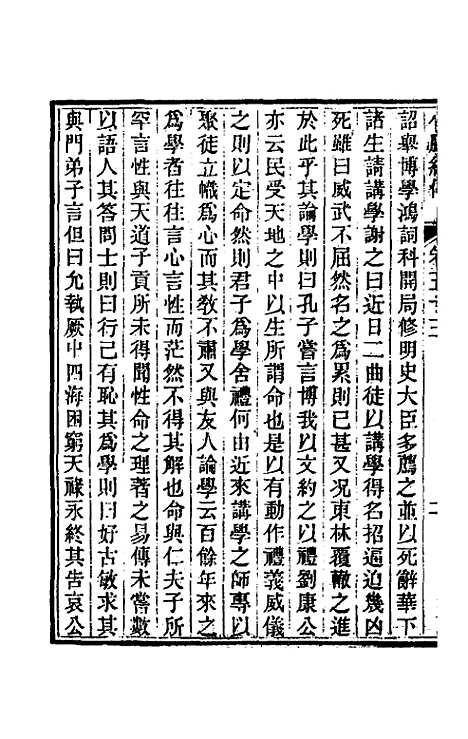 詔舉博學鴻詞科開局修明史大臣多薦之並以死辭華下
諸生請講學謝之曰近日二曲徒以講學得名招逼迫幾凶
死雖曰威武不屈然名之爲累則已甚又况東林覆轍之進
於此乎其論學則曰孔子嘗言博我以文約之以禮劉康公
亦云民受天地之中以生所謂命也是以有動作禮義威儀
之則以定命然則君子爲學舍禮何由近來講學之師專以
聚徒立幟爲心而其敎不肅又與友人論學云百餘年來之
爲學者往往言心言性而茫然不得其解也命與仁夫子所
罕言性與天道子貢所未得聞性命之理著之易傳未嘗數
以語人其答問士則曰行己有恥其爲學則曰好古敏求其
與門弟子言但曰允執厥中四海困窮天祿永終其告哀公